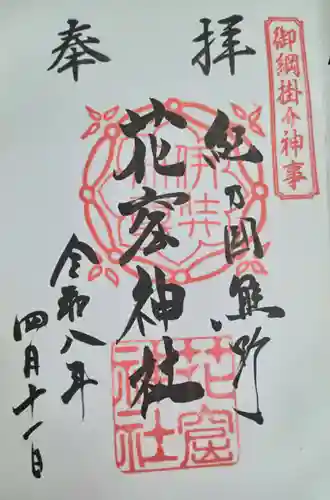 奉拝
御綱掛け神事
紀乃国熊野
花窟神社
令和八年
四月十一日
花窟
神社